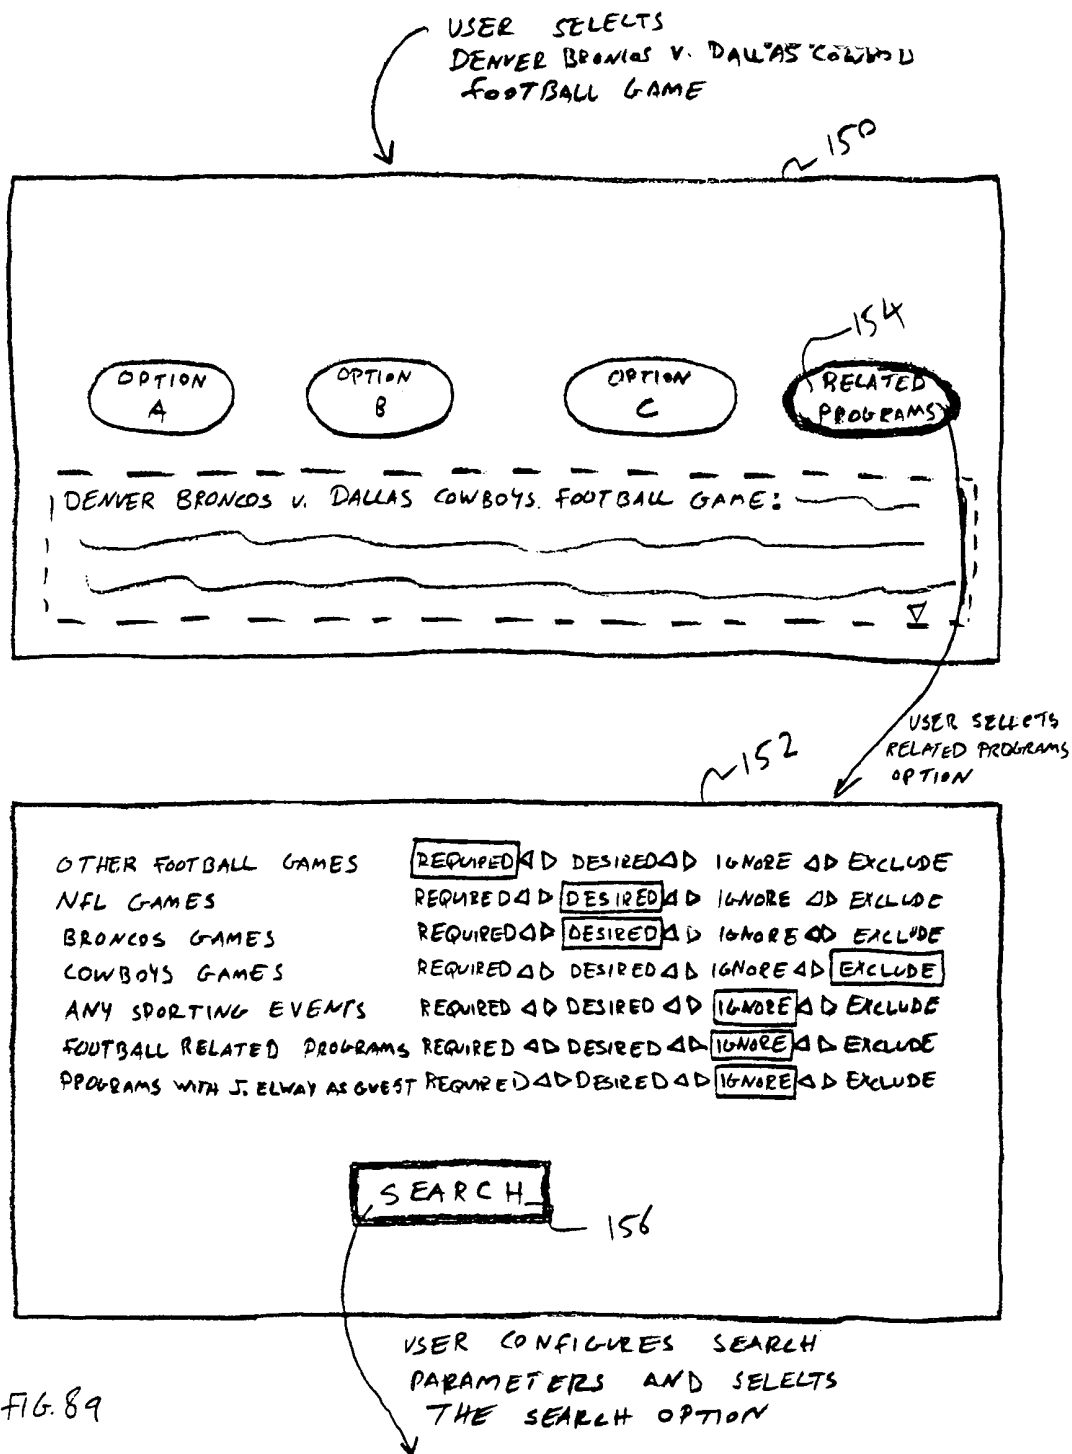 USER SELECTS
DENVER BRONCOS V. DALLAS COWBOY
FOOTBALL GAME
150
154
OPTION A
OPTION B
OPTION C
RELATED PROGRAMS
DENVER BRONCOS V. DALLAS COWBOYS. FOOTBALL GAME:
USER SELECTS
RELATED PROGRAMS
OPTION
152
OTHER FOOTBALL GAMES REQUIRED ◁ ▷ DESIRED ◁ ▷ IGNORE ◁ ▷ EXCLUDE
NFL GAMES REQUIRED ◁ ▷ DESIRED ◁ ▷ IGNORE ◁ ▷ EXCLUDE
BRONCOS GAMES REQUIRED ◁ ▷ DESIRED ◁ ▷ IGNORE ◁ ▷ EXCLUDE
COWBOYS GAMES REQUIRED ◁ ▷ DESIRED ◁ ▷ IGNORE ◁ ▷ EXCLUDE
ANY SPORTING EVENTS REQUIRED ◁ ▷ DESIRED ◁ ▷ IGNORE ◁ ▷ EXCLUDE
FOOTBALL RELATED PROGRAMS REQUIRED ◁ ▷ DESIRED ◁ ▷ IGNORE ◁ ▷ EXCLUDE
PROGRAMS WITH J. ELWAY AS GUEST REQUIRED ◁ ▷ DESIRED ◁ ▷ IGNORE ◁ ▷ EXCLUDE
SEARCH_
156
USER CONFIGURES SEARCH
PARAMETERS AND SELECTS
THE SEARCH OPTION
FIG. 89